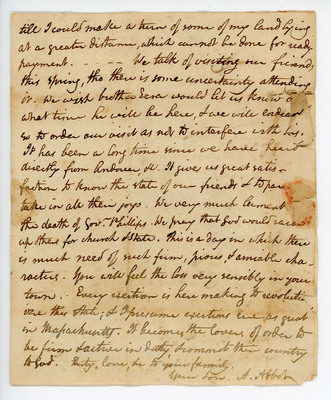 till I could make a turn of some of my land lying
at a greater distance, which cannot be done for ready
payment. - - - - - We talk of visiting our friends
this spring, tho there is some uncertainty attending
it. We wish brother would let us know
what time he will be here, & we will endeavor
so to order our visit as not to interfere with his.
It has been a long time since we have heard
directly from Andover, &c. It gives us great satis-
faction to know the state of our friends & to par-
take in all their joys. We very much lament
the death of Gov. Phillips. We pray that God would raise
up others for church & State. This is a day in which there
is much need of such firm, pious & amiable cha-
racters. You will feel the loss very sensibly in your
town. Every exertion is here making to revolution
ize this State; & I presume exertions are as great
in Massachusetts. It becomes the lovers of order to
be firm & active in duty & commit their country
to God. Duty, love, &c to your family.
Your Son, A. Abbot